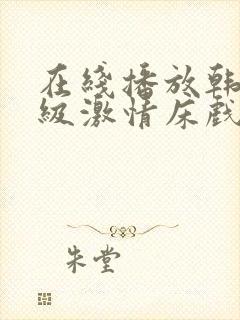 在綫播放韩
级激情床戲
朱堂